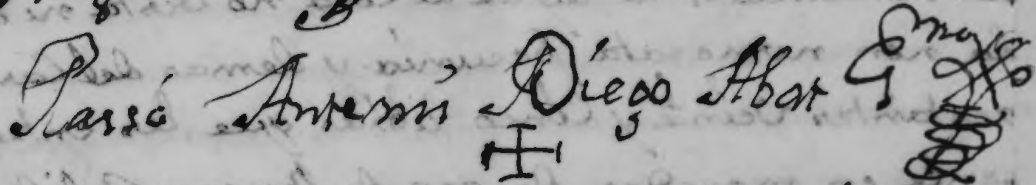 Passó Antemi Diego Abat G mo